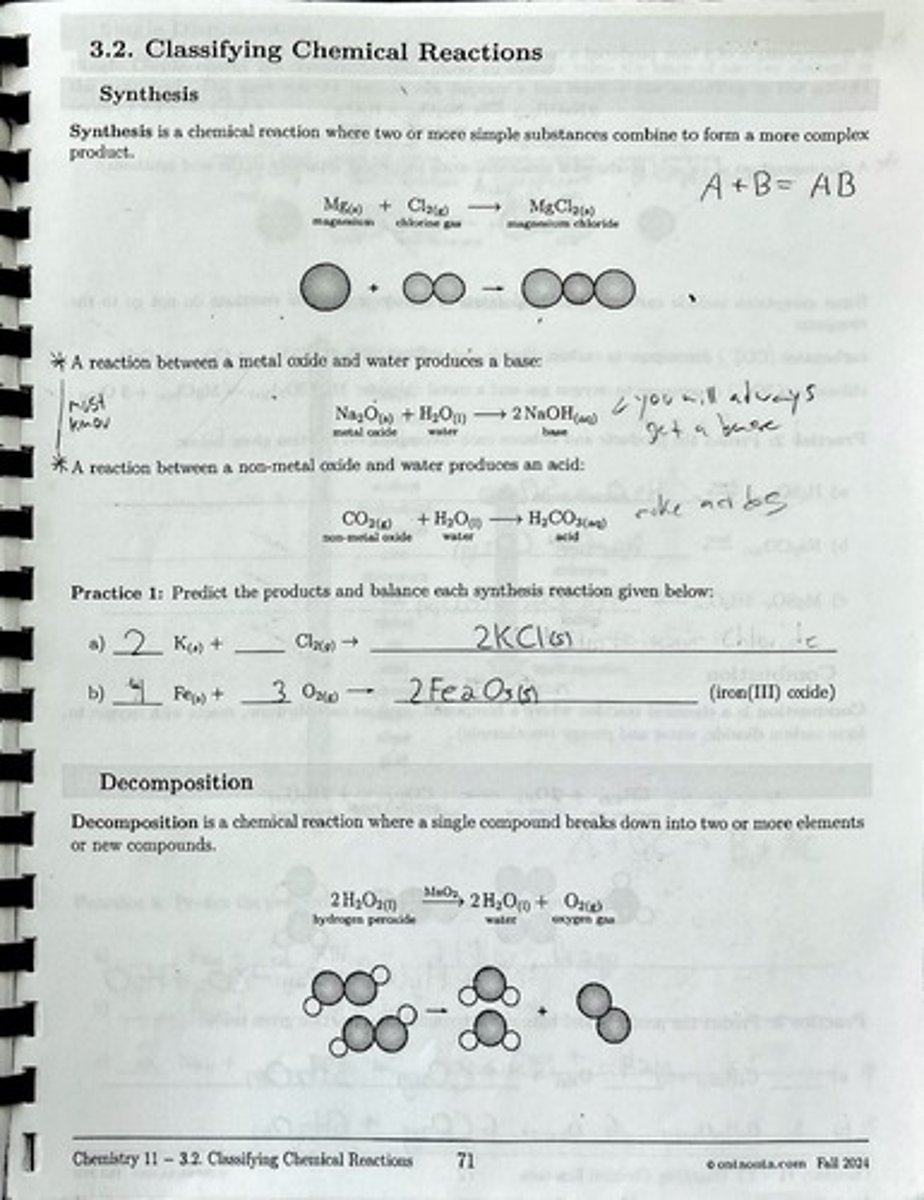 3.2. Classifying Chemical Reactions
Synthesis
Synthesis is a chemical reaction where two or more simple substances combine to form a more complex
product.
A + B = AB
Mg(s) + Cl2(g) ⟶ MgCl2(s)
magnesium chlorine gas magnesium chloride
+ →
* A reaction between a metal oxide and water produces a base:
must
know
Na2O(s) + H2O(l) ⟶ 2 NaOH(aq) you will always
metal oxide water base get a base
* A reaction between a non-metal oxide and water produces an acid:
CO2(g) + H2O(l) ⟶ H2CO3(aq)
non-metal oxide water acid
Practice 1: Predict the products and balance each synthesis reaction given below:
a) 2 K(s) + ____ Cl2(g) → 2KCl(s)
b) 4 Fe(s) + 3 O2(g) ⟶ 2Fe2O3(s) (iron(III) oxide)
Decomposition
Decomposition is a chemical reaction where a single compound breaks down into two or more elements
or new compounds.
MnO2
2 H2O2(l) ⟶ 2 H2O(l) + O2(g)
hydrogen peroxide water oxygen gas
→ +
Chemistry 11 – 3.2. Classifying Chemical Reactions 71 Fall 2024